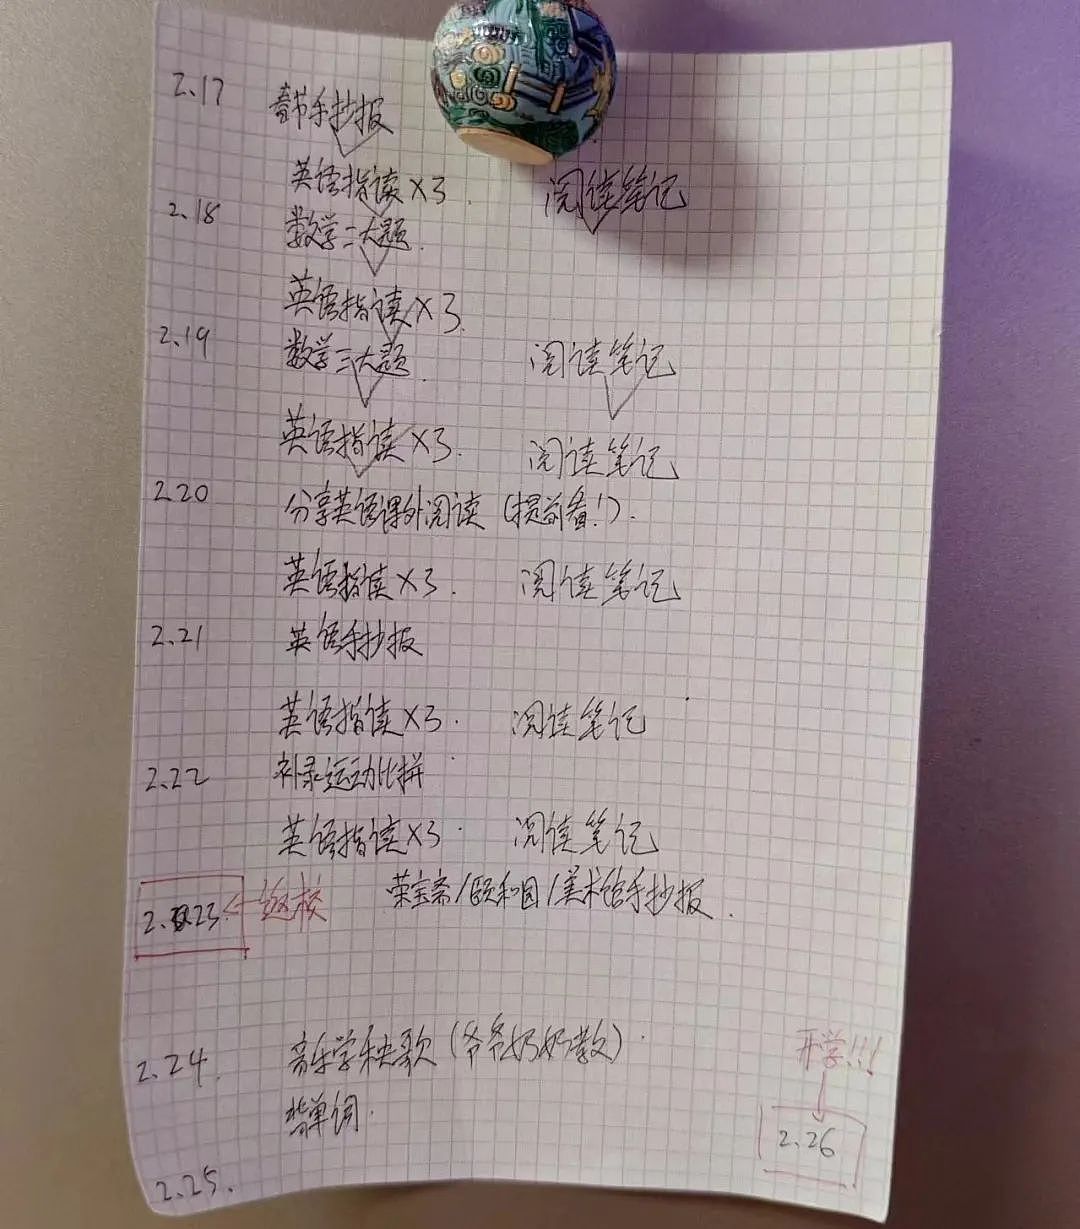 2.17 春节手抄报
英语指读×3. 阅读笔记
2.18 数学二大题.
英语指读×3.
2.19 数学三大题. 阅读笔记
英语指读×3. 阅读笔记
2.20 分享英语课外阅读(提前看!).
英语指读×3. 阅读笔记
2.21 英语手抄报
英语指读×3. 阅读笔记
2.22 补录运动比拼
英语指读×3. 阅读笔记
荣宝斋/颐和园/美术馆手抄报.
2.23 ← 返校
2.24. 音乐学秧歌(爷爷奶奶教).
背单词.
开学!!!
2.26
2.25.